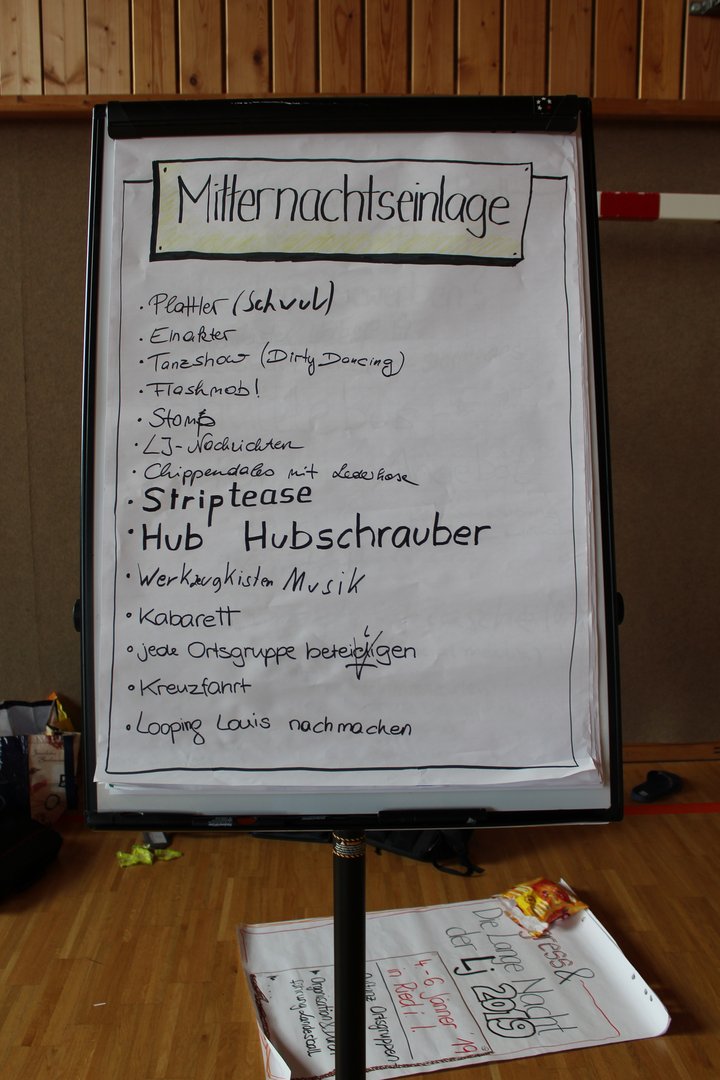 Mitternachtseinlage
• Plattler (Schwul)
• Einakter
• Tanzshow (Dirty Dancing)
• Flashmob!
• Stomp
• LJ-Nachrichten
• Chippendales mit Lederhose
• Striptease
• Hub Hubschrauber
• Werkzeugkisten Musik
• Kabarett
• jede Ortsgruppe beteiligen
• Kreuzfahrt
• Looping Louis nachmachen
ress &
Die Lange Nacht
der Lj 2019
4-6 jänner '19
in Ried i I.
Ortsgruppen
• Organisation &
führung Landesball